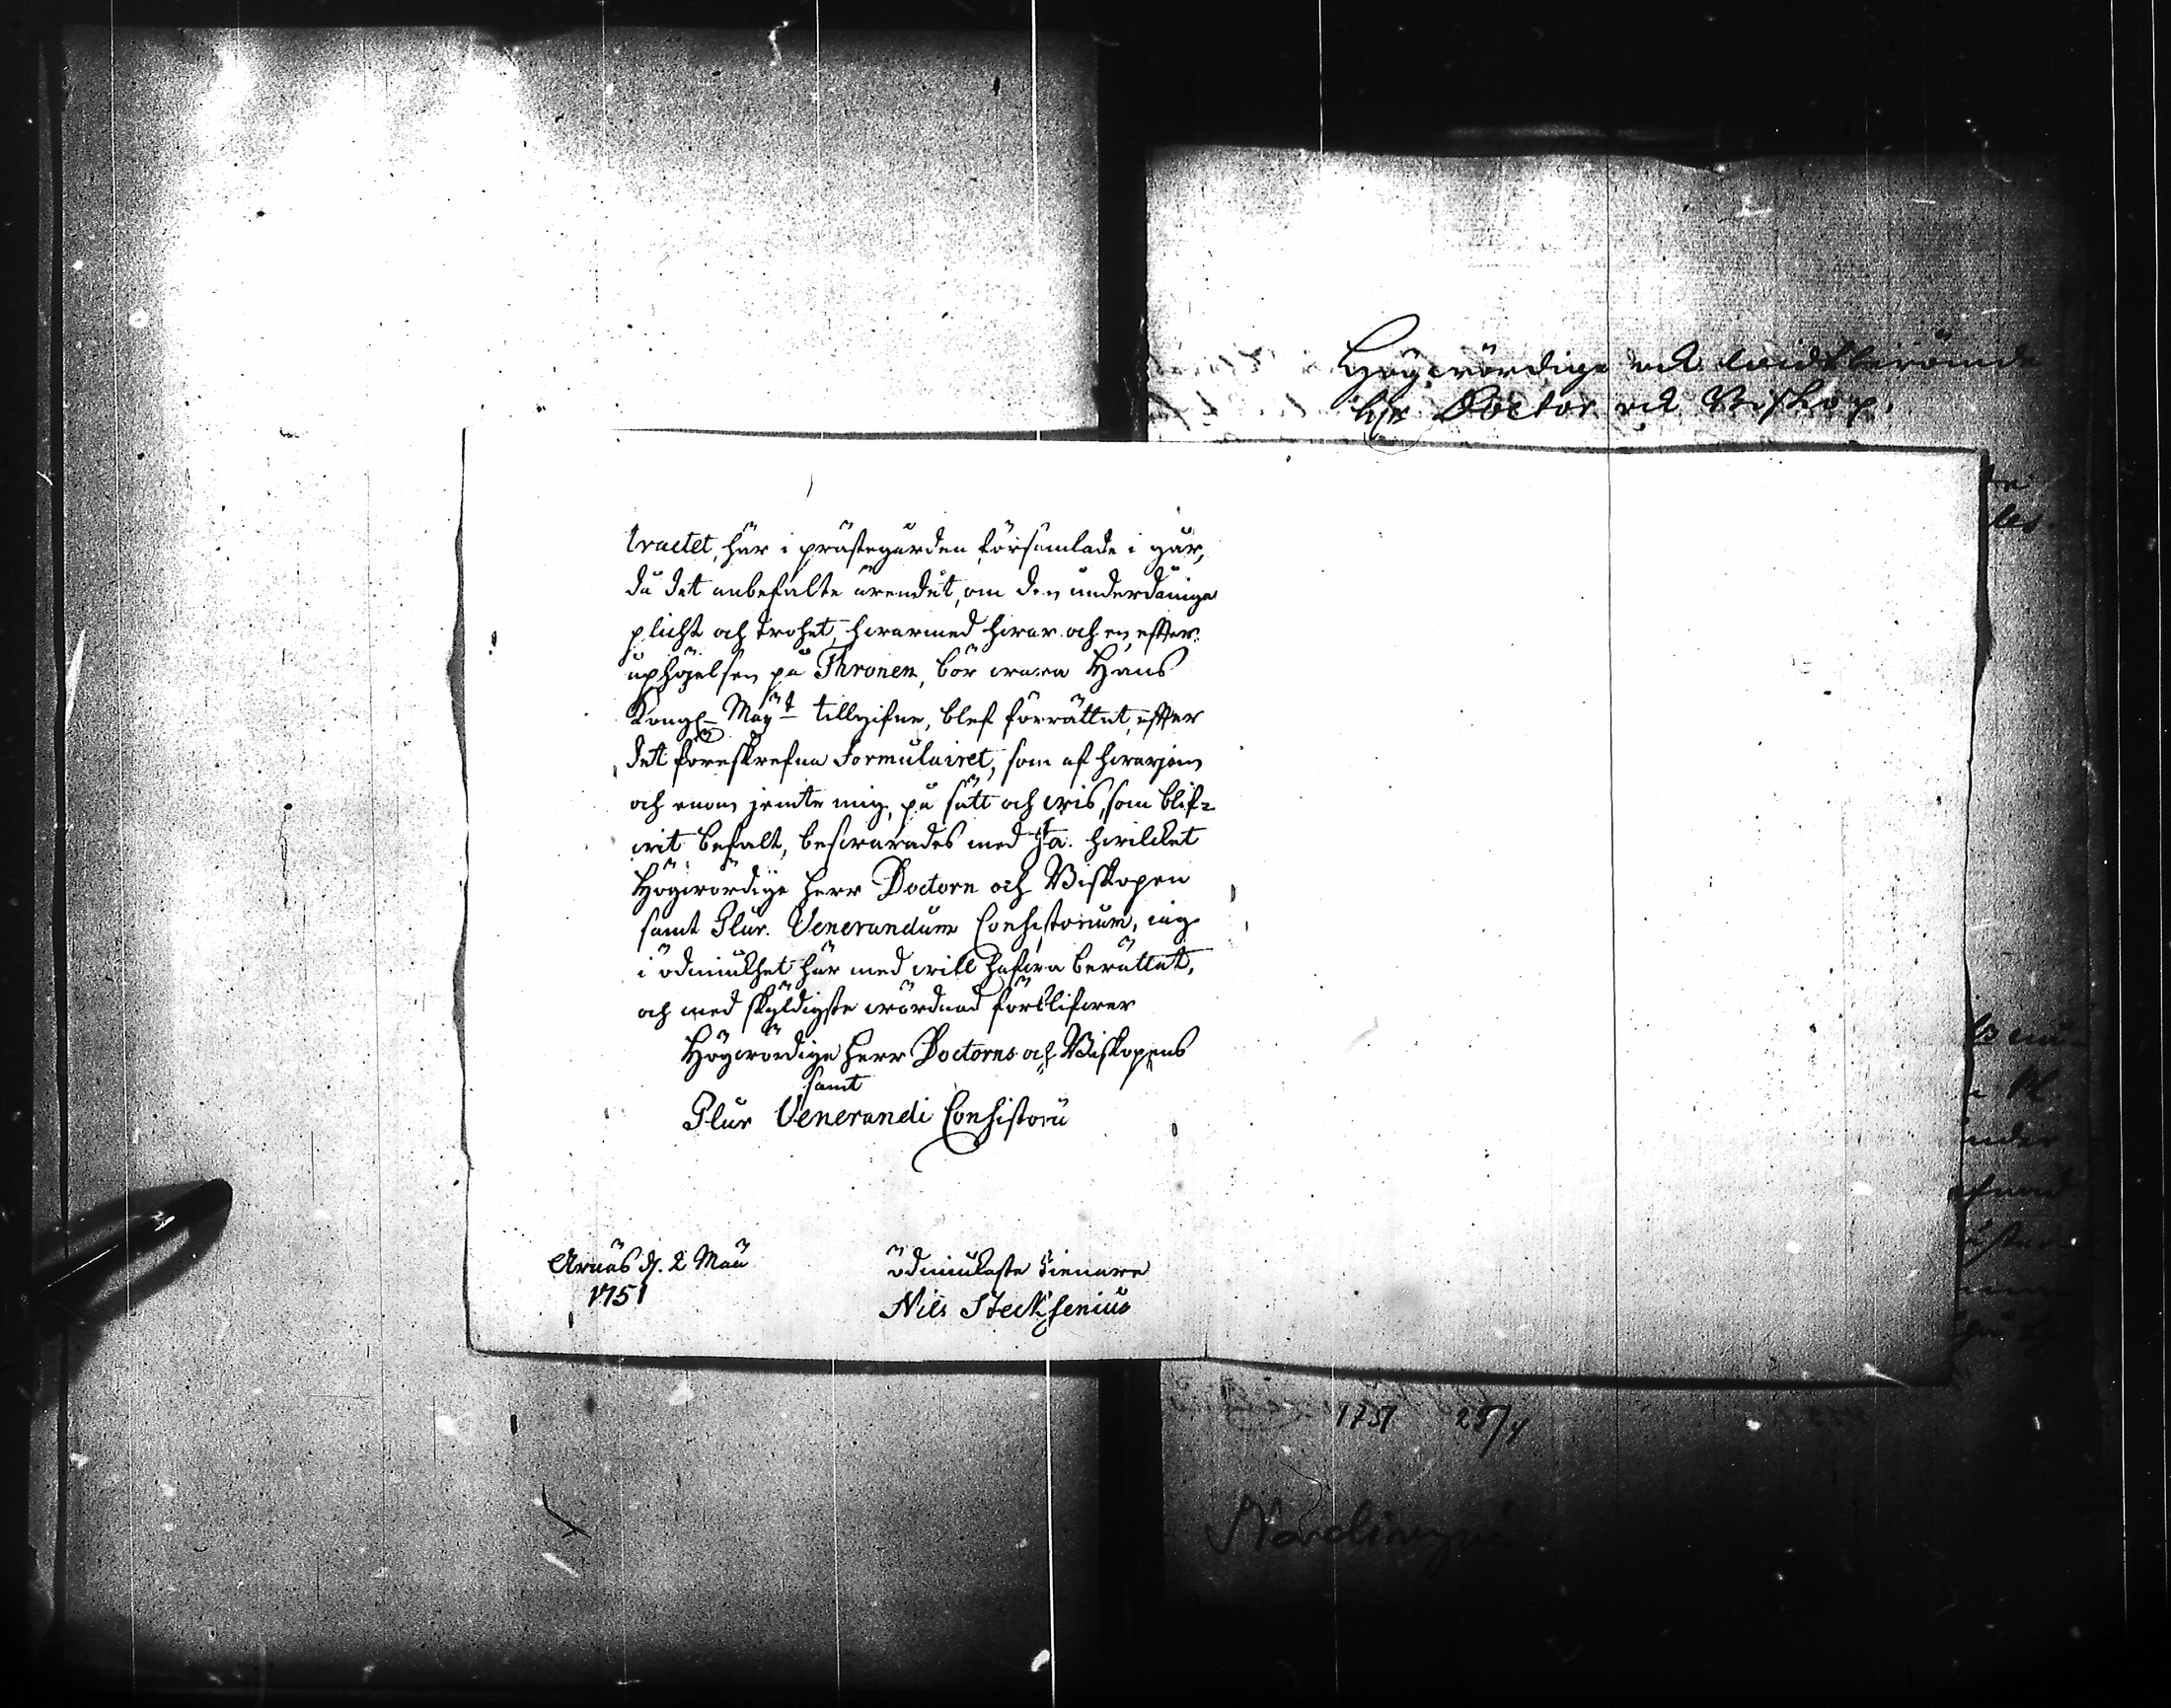 Högwördige och widtberömde
herr Doctor och Biskop.
tractet, här i prästegården församlade i går,
då det anbefalte ärendet, om den underdåniga
plicht och trohet, hwarmed hwar och en, efter
uphöjelsen på Thronen, bör wara Hans
Kongl. Maÿt tillgifne, blef förrättat, efter
det föreskrefna Formulairet, som af hwarjom
och enom jemte mig, på sätt och wis, som blif-
wit befalt, beswarades med Ja. hwilcket
Högwördige herr Doctorn och Biskopen
samt Plur. Venerandum Consistorium, jag
i ödmiukhet här med will hafwa berättat,
och med skyldigste wördnad förblifwer
Högwördige herr Doctorns och Biskopens
samt
Plur Venerandi Consistorii
Arnäs d. 2 Maii
1751
ödmiukaste tienare
Nils Stecksenius
1751 25/4
Nordingrå